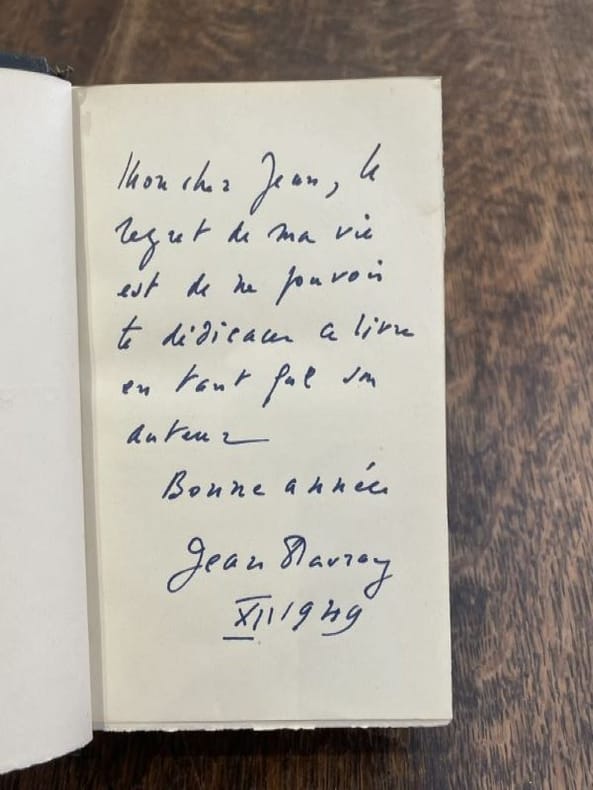 Mon cher Jean, le
regret de ma vie
est de ne pouvoir
te dédicacer ce livre
en tant que son
auteur
Bonne année
Jean Davray
XII 1949